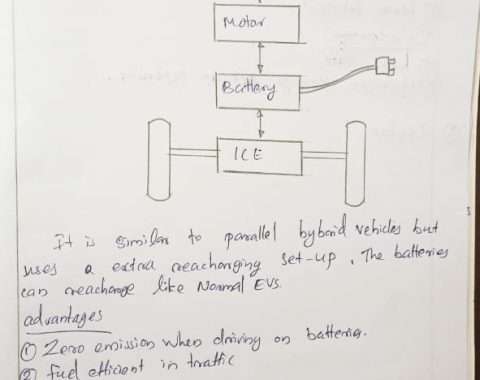 Motor
Battery
ICE
It is similar to parallel hybrid vehicles but
uses a extra reacharging set-up, The batteries
can reacharge like Normal EVs.
advantages
① Zero emission when driving on batteries.
② fuel efficient in traffic